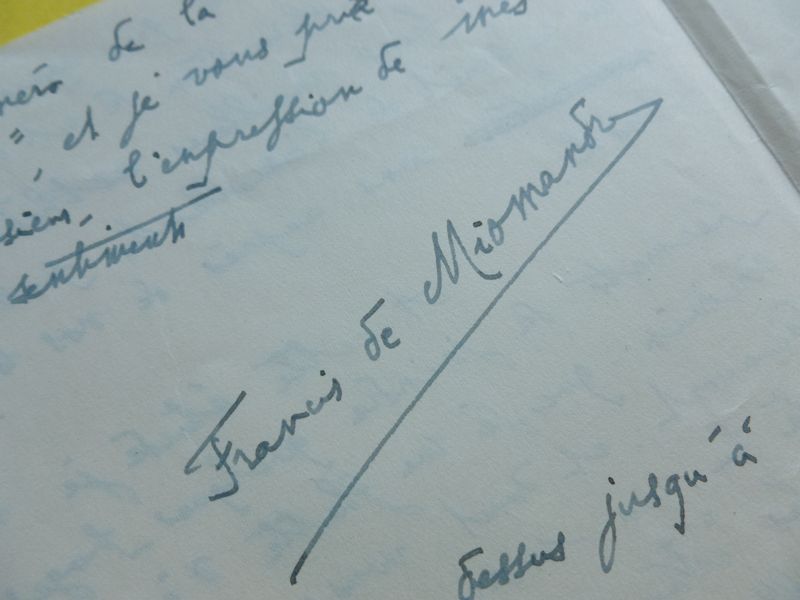 de la
et je vous prie
l'expression de mes
sentiments
Francis de Miomandre
dessus jusqu'à